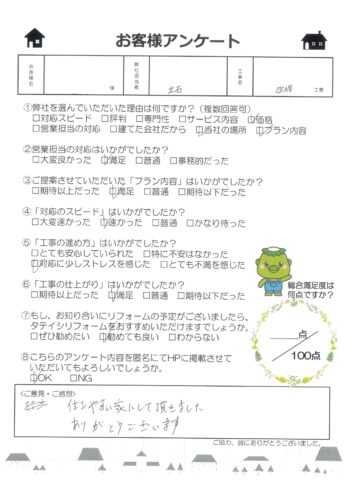 お客様アンケート
お客様名 様 弊社担当者 土石 工事名 改修 工事
①弊社を選んでいただいた理由は何ですか?(複数回答可)
□対応スピード □評判 □専門性 □サービス内容 ☑価格
□営業担当の対応 □建てた会社だから ☑当社の場所 ☑プラン内容
②営業担当の対応はいかがでしたか?
□大変良かった ☑満足 □普通 □事務的だった
③ご提案させていただいた「プラン内容」はいかがでしたか?
□期待以上だった ☑満足 □普通 □期待以下だった
④「対応のスピード」はいかがでしたか?
□大変速かった ☑速かった □普通 □かなり待った
⑤「工事の進め方」はいかがでしたか?
□とても安心していられた □特に不安はなかった
☑対応に少しストレスを感じた □とても不満を感じた
⑥「工事の仕上がり」はいかがでしたか?
□期待以上だった ☑満足 □普通 □期待以下だった
総合満足度は
何点ですか?
⑦もし、お知り合いにリフォームの予定がございましたら、
タテイシリフォームをおすすめいただけますでしょうか。
□ぜひ勧めたい ☑勧めても良い □わからない
点
/100点
⑧こちらのアンケート内容を匿名にてHPに掲載させて
いただいてもよろしいでしょうか。
☑OK □NG
<ご意見・ご感想>
住みやすい家にして頂きました
ありがとうございます
ご協力、誠にありがとうございました。